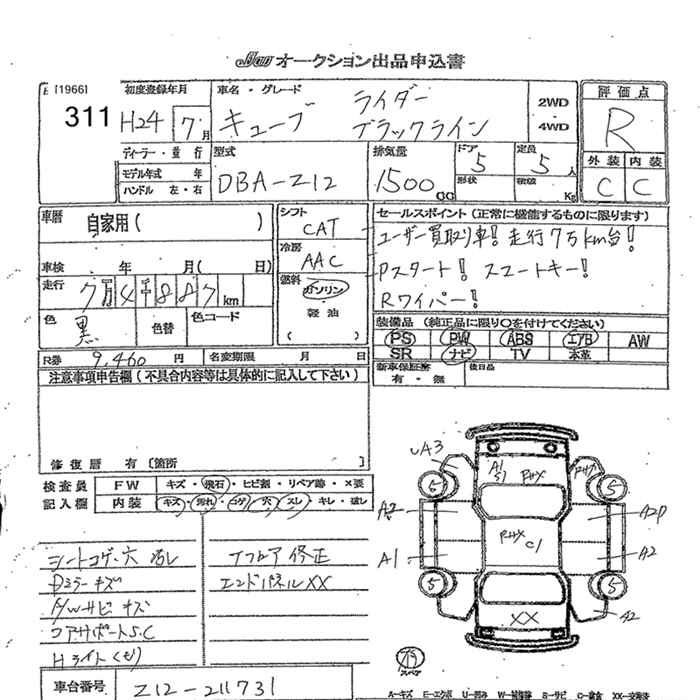 JU オークション出品申込書
[1966]
311
初度登録年月
H24 7月
車名・グレード
キューブ
ライダー
ブラックライン
2WD
4WD
評価点
R
外装 内装
C C
ディーラー・並行
モデル年式 年
ハンドル 左・右
型式
DBA-Z12
排気量
1500 CC
ドア
5
形状
定員
5人
積載
Kg
車歴
自家用( )
車検 年 月( 日)
走行
7万4千887km
色
黒
色替
色コード
シフト
CAT
冷房
AAC
燃料
ガソリン
軽油
( )
セールスポイント(正常に機能するものに限ります)
ユーザー買取り車! 走行7万km台!
Pスタート! スマートキー!
Rワイパー!
装備品(純正品に限り○を付けてください)
PS PW ABS エアB AW
SR ナビ TV 本革
新車保証書
有・無
後日品
R券 9,460円
名変期限 月 日
注意事項申告欄(不具合内容等は具体的に記入して下さい)
修復歴 有〔箇所 〕
検査員
記入欄
FW キズ・飛石・ヒビ割・リペア跡・×要
内装 キズ・汚れ・コゲ・穴・スレ・キレ・破レ
シートコゲ・穴
Dミラーキズ
コアサポートS.C
Hライトくもり
Tフロア修正
エンドパネルXX
車台番号
Z12-211731
UA3
A1
S1
PHX
5
5
A2
A2P
PHX
C1
A1
A2
5
5
XX
A2
スペア
A-キズ E-エクボ U-凹み W-補修跡 S-サビ C-腐食 XX-交換済